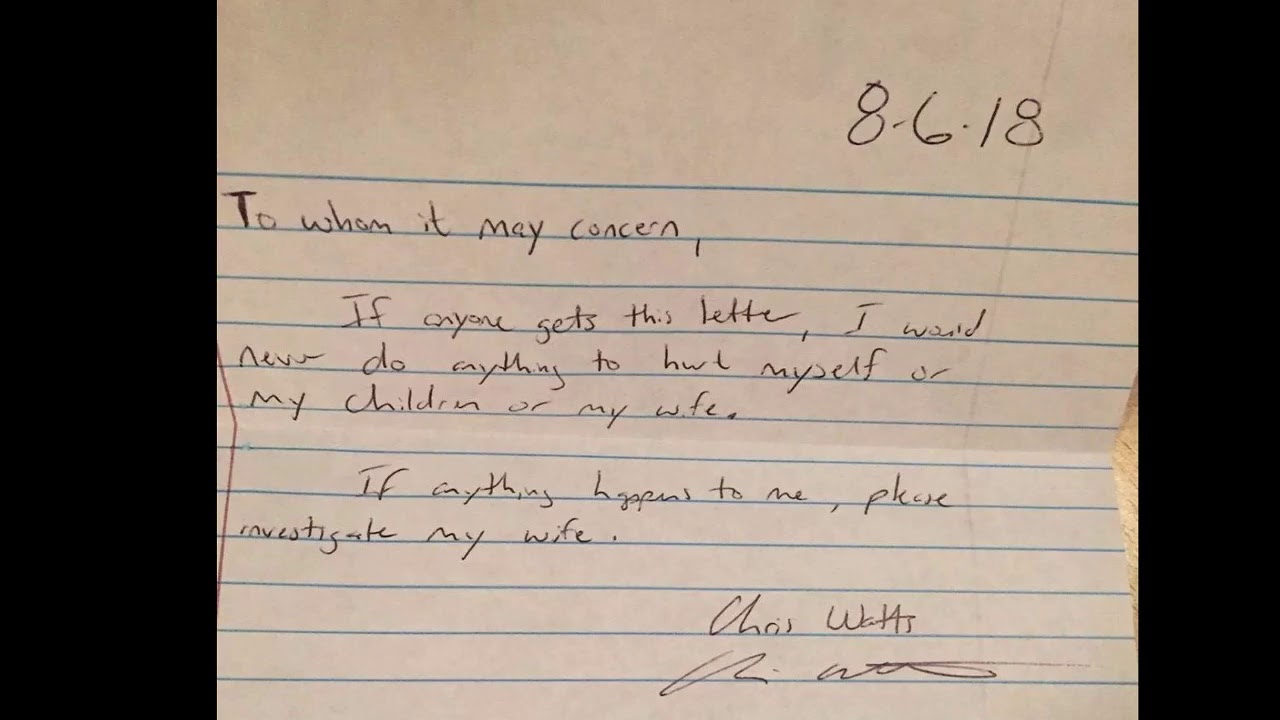 8.6.18
To whom it may concern,
If anyone gets this letter, I would
never do anything to hurt myself or
my children or my wife.
If anything happens to me, please
investigate my wife.
Chris Watts